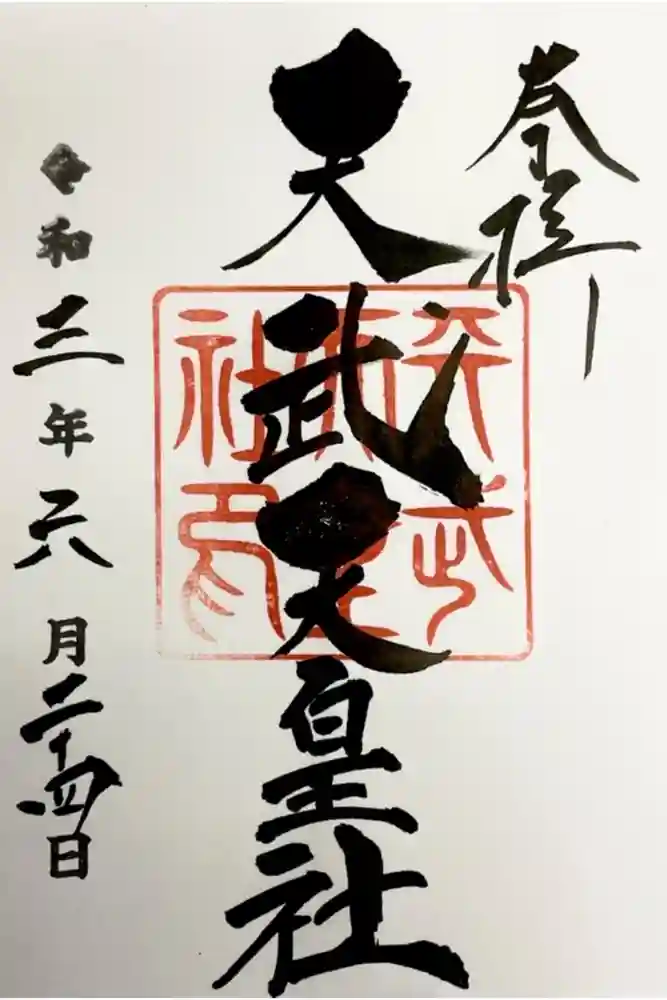 奉拝
天武天皇社
天武天皇社印
令和三年六月二十四日